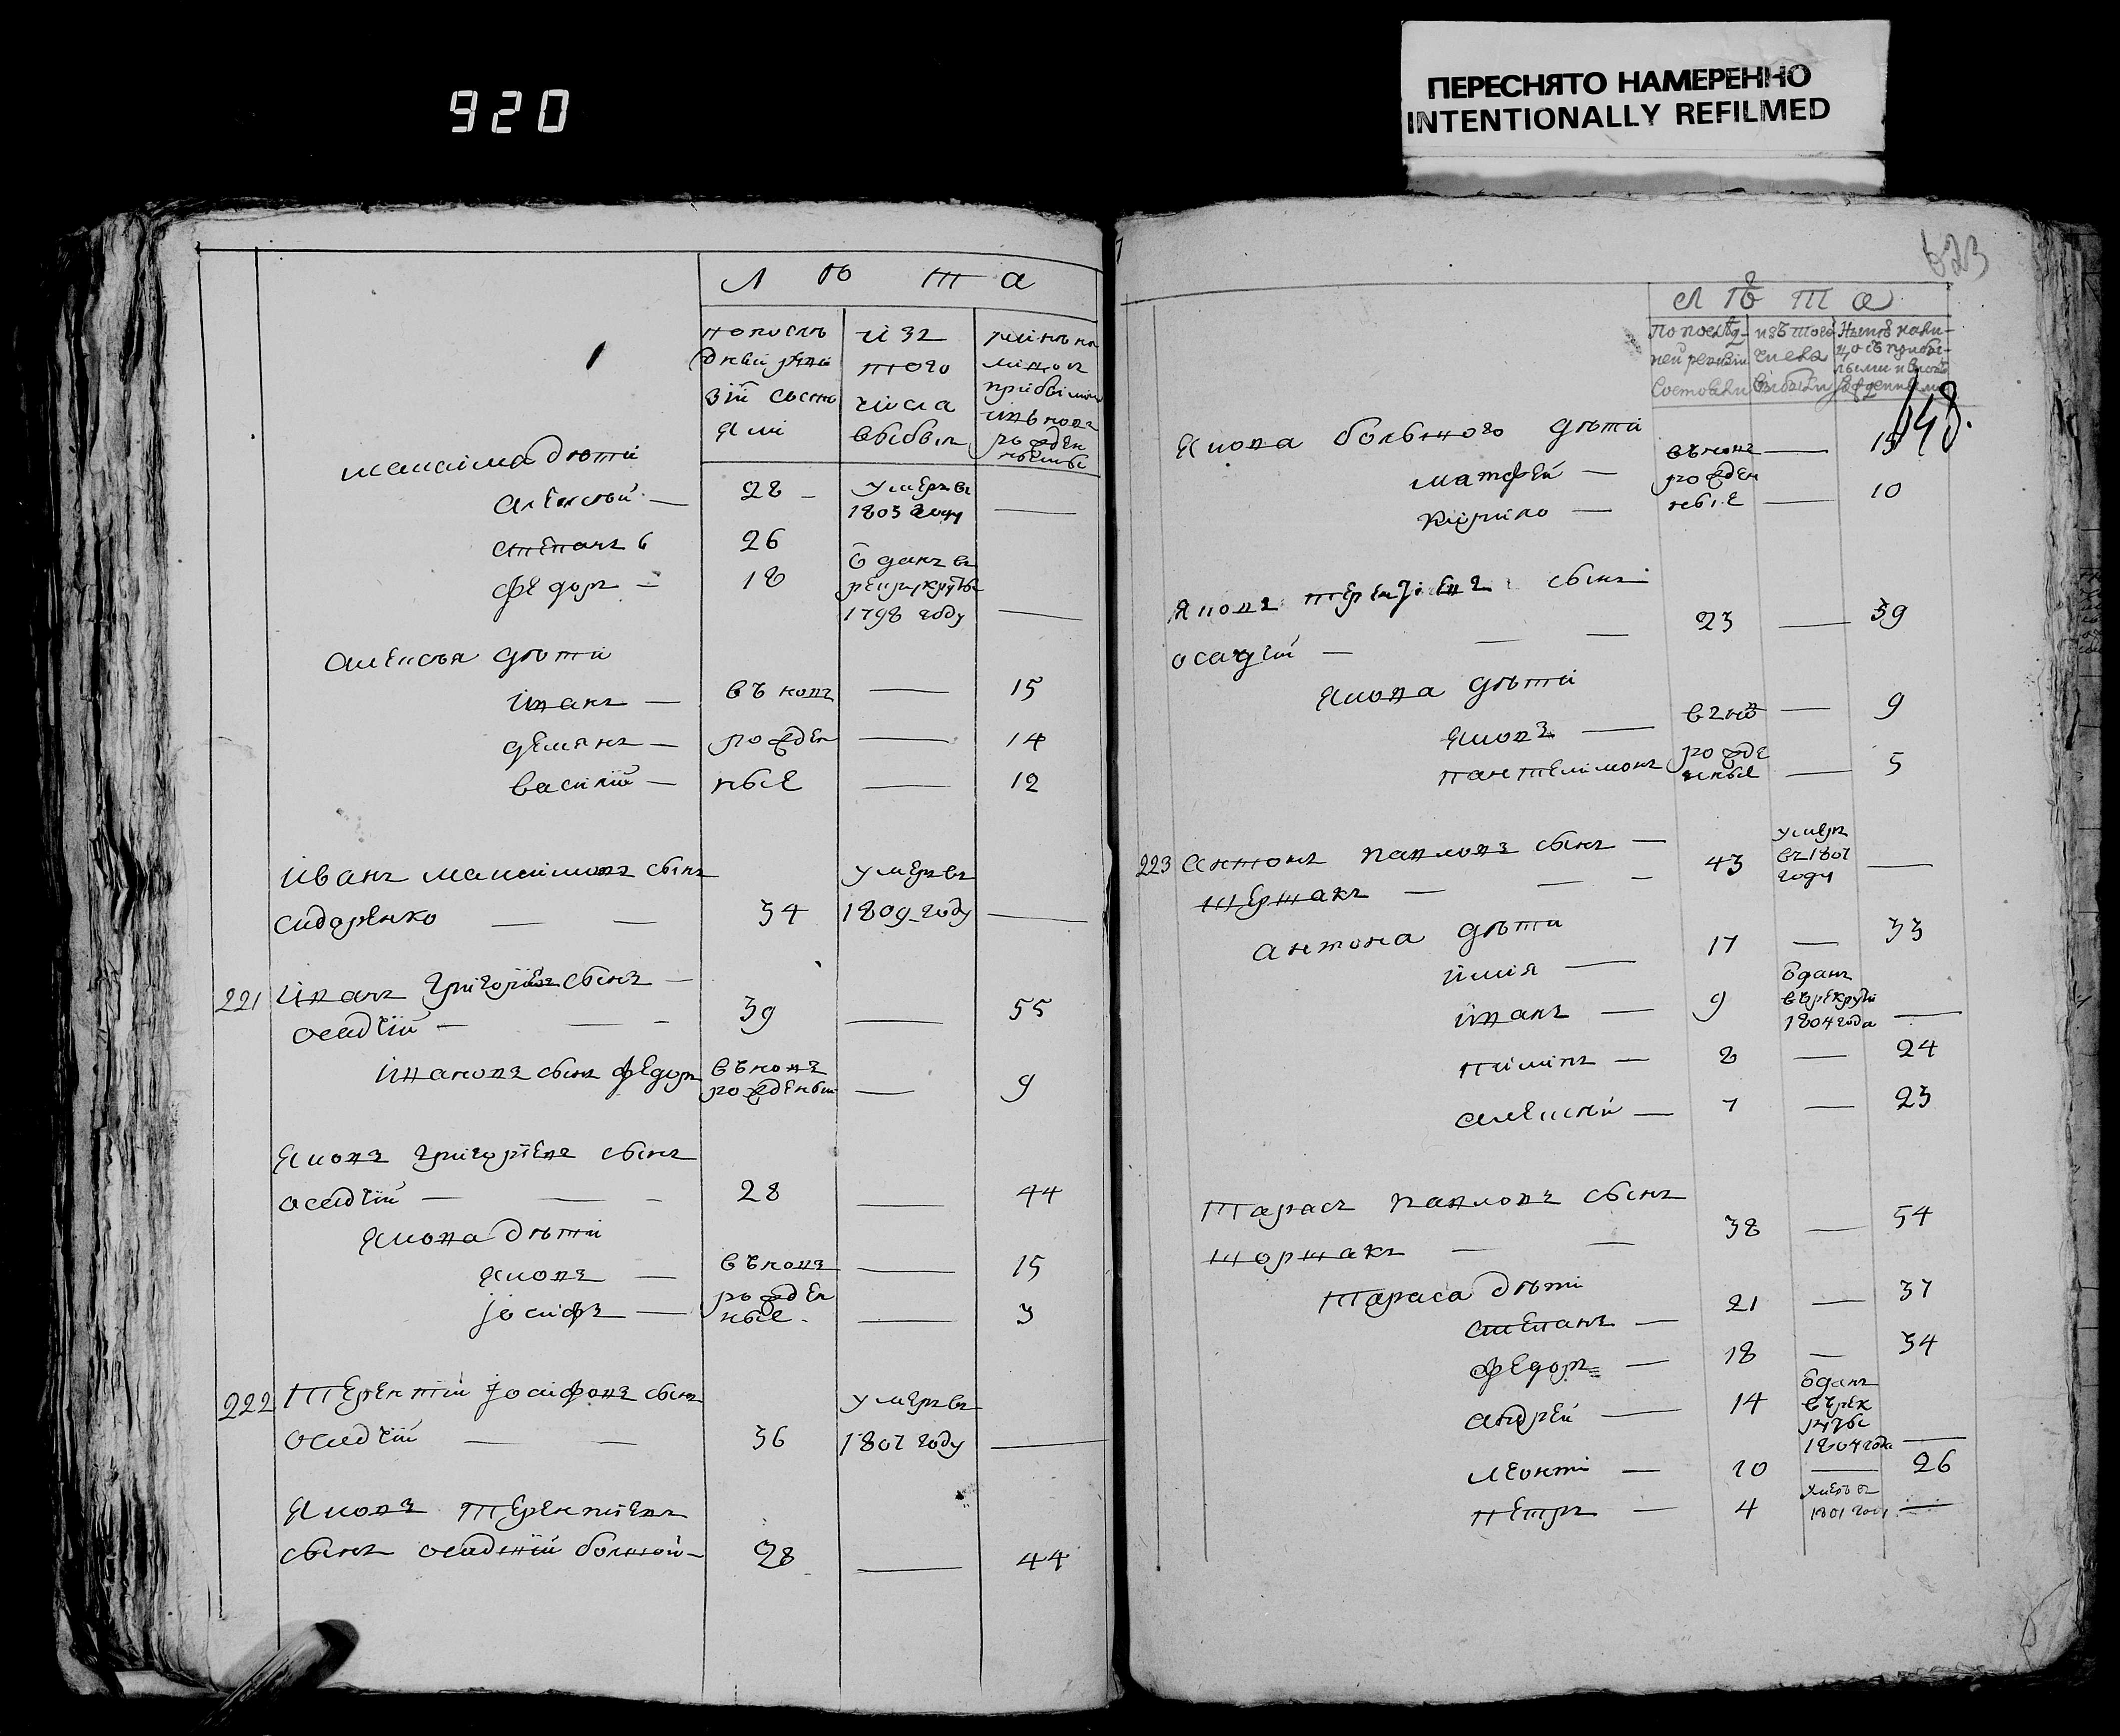 920
ПЕРЕСНЯТО НАМЕРЕННО
INTENTIONALLY REFILMED
Л Ѣ Т а
попослѣ
дней реви
зіи состо
яли
изъ
того
числа
выбыло
максима дѣти
алексѣй — 28 — умеръ въ 1803 году —
степанъ 26
федоръ — 18 отданъ въ рекруты 1798 году —
алексѣя дѣти
иванъ — въ новъ — 15
демянъ — рожден — 14
василій — ные — 12
иванъ максимовъ сынъ
сидоренко — — 34 умеръ въ 1809 году —
221 иванъ григоріевъ сынъ —
осадчій — — — 39 — 55
ивановъ сынъ федоръ въновъ рожденый — 9
яковъ григоріевъ сынъ
осадчій — — — 28 — 44
якова дѣти
яковъ — въновъ — 15
іосифъ — рожден ные — 3
222 Терентій іосифовъ сынъ
осадчій — — 36 умеръ въ 1807 году —
яковъ терентіевъ
сынъ осадчій болшой — 28 — 44
623
Л Ѣ Т а
По послѣд-
ней ревизіи
состояли
изъ того
числа
выбыли
648.
якова большого дѣти
матфей — въновъ — 15
кирило — рожден ные — 10
яковъ терентіевъ сынъ
осадчій — — — 23 — 39
якова дѣти
яковъ — въ но — 9
пантелимонъ рожде нные — 5
223 антонъ павловъ сынъ —
шершакъ — — — 43 умеръ въ 1807 году —
антона дѣти
илія — 17 — 33
иванъ — 9 отданъ въ рекруты 1804 года —
пиминъ — 8 — 24
алексѣй — 7 — 23
Тарасъ павловъ сынъ
шоршакъ — — 38 — 54
Тараса дѣти
степанъ — 21 — 37
федоръ — 18 — 34
андрей — 14 отданъ въ рек руты 1804 года —
леонти — 10 — 26
петръ — 4 умеръ въ 1801 году —